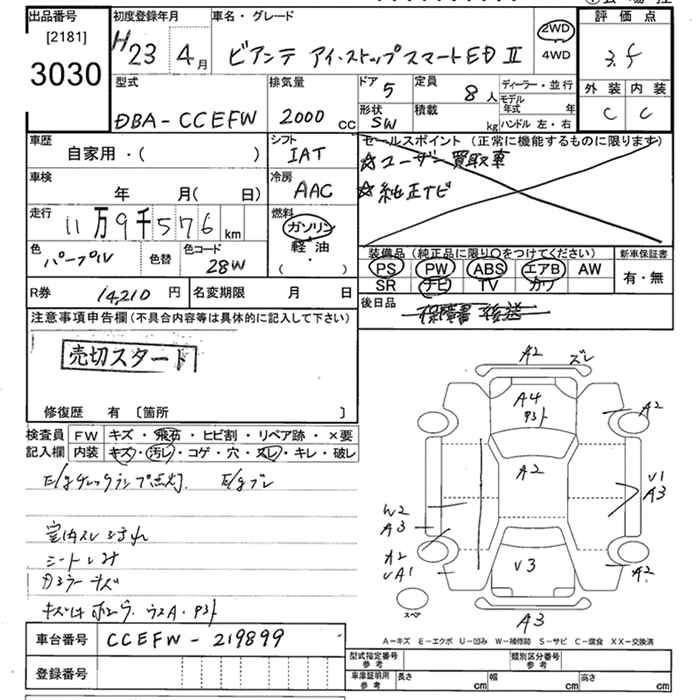 出品番号
[2181]
3030
初度登録年月
H23 4月
車名・グレード
ビアンテ アイ・ストップスマートED II
2WD
4WD
評価点
3.5
外装 内装
C C
型式
DBA-CCEFW
排気量
2000 CC
ドア 5
定員 8人
形状 SW
積載 kg
ディーラー・並行
モデル年式 年
ハンドル 左・右
車歴
自家用・( )
シフト
IAT
セールスポイント (正常に機能するものに限ります)
☆ユーザー買取車
☆純正ナビ
車検
年 月( 日)
冷房
AAC
走行
11万9千576 km
燃料
ガソリン
軽油
( ・ )
色
パープル
色替
色コード
28W
装備品 (純正品に限り〇をつけてください)
PS PW ABS エアB AW
SR ナビ TV カワ
新車保証書
有・無
R券 14,210 円
名変期限 月 日
後日品
保証書 後送
注意事項申告欄 (不具合内容等は具体的に記入して下さい)
売切スタート
修復歴 有 [箇所 ]
検査員 FW キズ・飛石・ヒビ割・リペア跡・×要
記入欄 内装 キズ・汚レ・コゲ・穴・スレ・キレ・破レ
E/gチェックランプ点灯. E/gブレ
室内スレ 汚れ
カラーキズ
車台番号 CCEFW-219899
登録番号
A2 ズレ
A4
A2
A2
V1
A3
W2
A3
A2
UA1
V3
A2
スペア
A3
A-キズ E-エクボ U-凹み W-補修跡 S-サビ C-腐食 XX-交換済
型式指定番号 参考
類別区分番号 参考
車庫証明用 参考
長さ cm 幅 cm 高さ cm